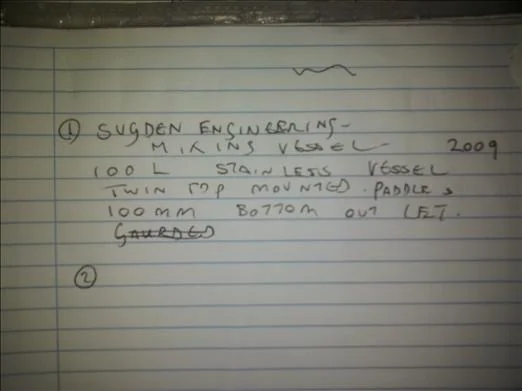 ① SUGDEN ENGINEERING-
MIXING VESSEL- 2009
100 L STAINLESS VESSEL
TWIN TOP MOUNTED. PADDLES
100MM BOTTOM OUT LET.
GAURDED
②